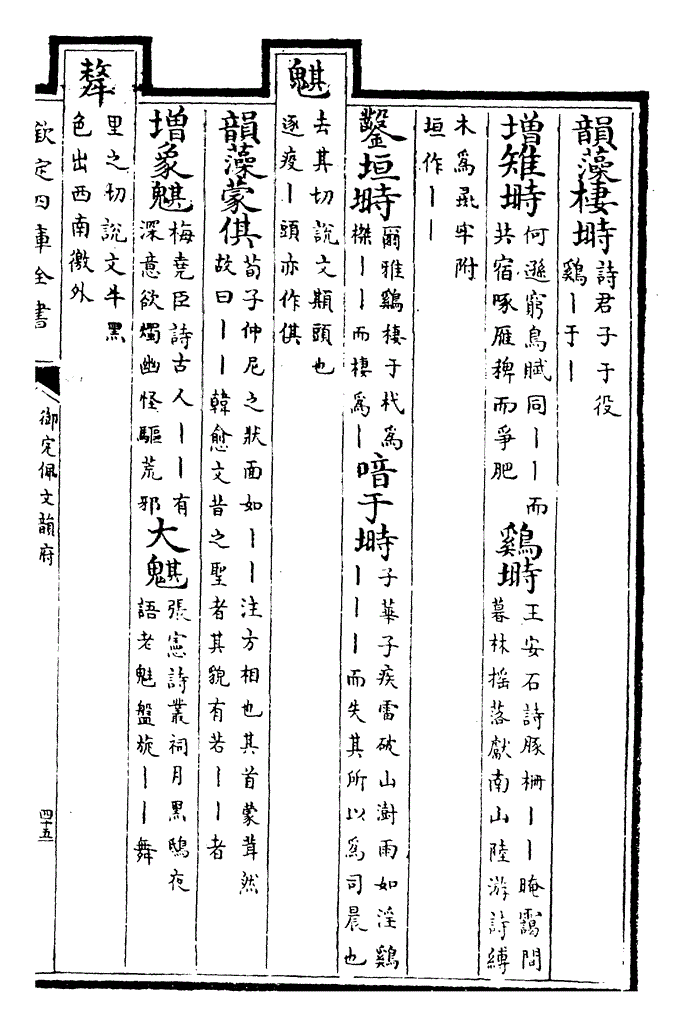 韻藻棲塒詩君子于役
雞丨于丨
增雉塒何遜窮鳥賦同丨丨而
共宿啄雁稗而爭肥
雞塒王安石詩豚柵丨丨晻靄間
暮林搖落獻南山陸游詩縛
木為彘牢附
垣作丨丨
鑿垣塒爾雅雞棲于杙為
榤丨丨而棲為丨
喑于塒子華子疾雷破山澍雨如淫雞
丨丨丨而失其所以為司晨也
魌
去其切說文頬頭也
逐疫丨頭亦作倛
韻藻蒙倛荀子仲尼之狀面如丨丨注方相也其首蒙茸然
故曰丨丨韓愈文昔之聖者其貌有若丨丨者
增象魌梅堯臣詩古人丨丨有
深意欲燭幽怪驅荒邪
大魌張憲詩叢祠月黑鴟夜
語老魅盤旋丨丨舞
犛
里之切說文牛黑
色出西南徼外
欽定四庫全書
御定佩文韻府
四十五